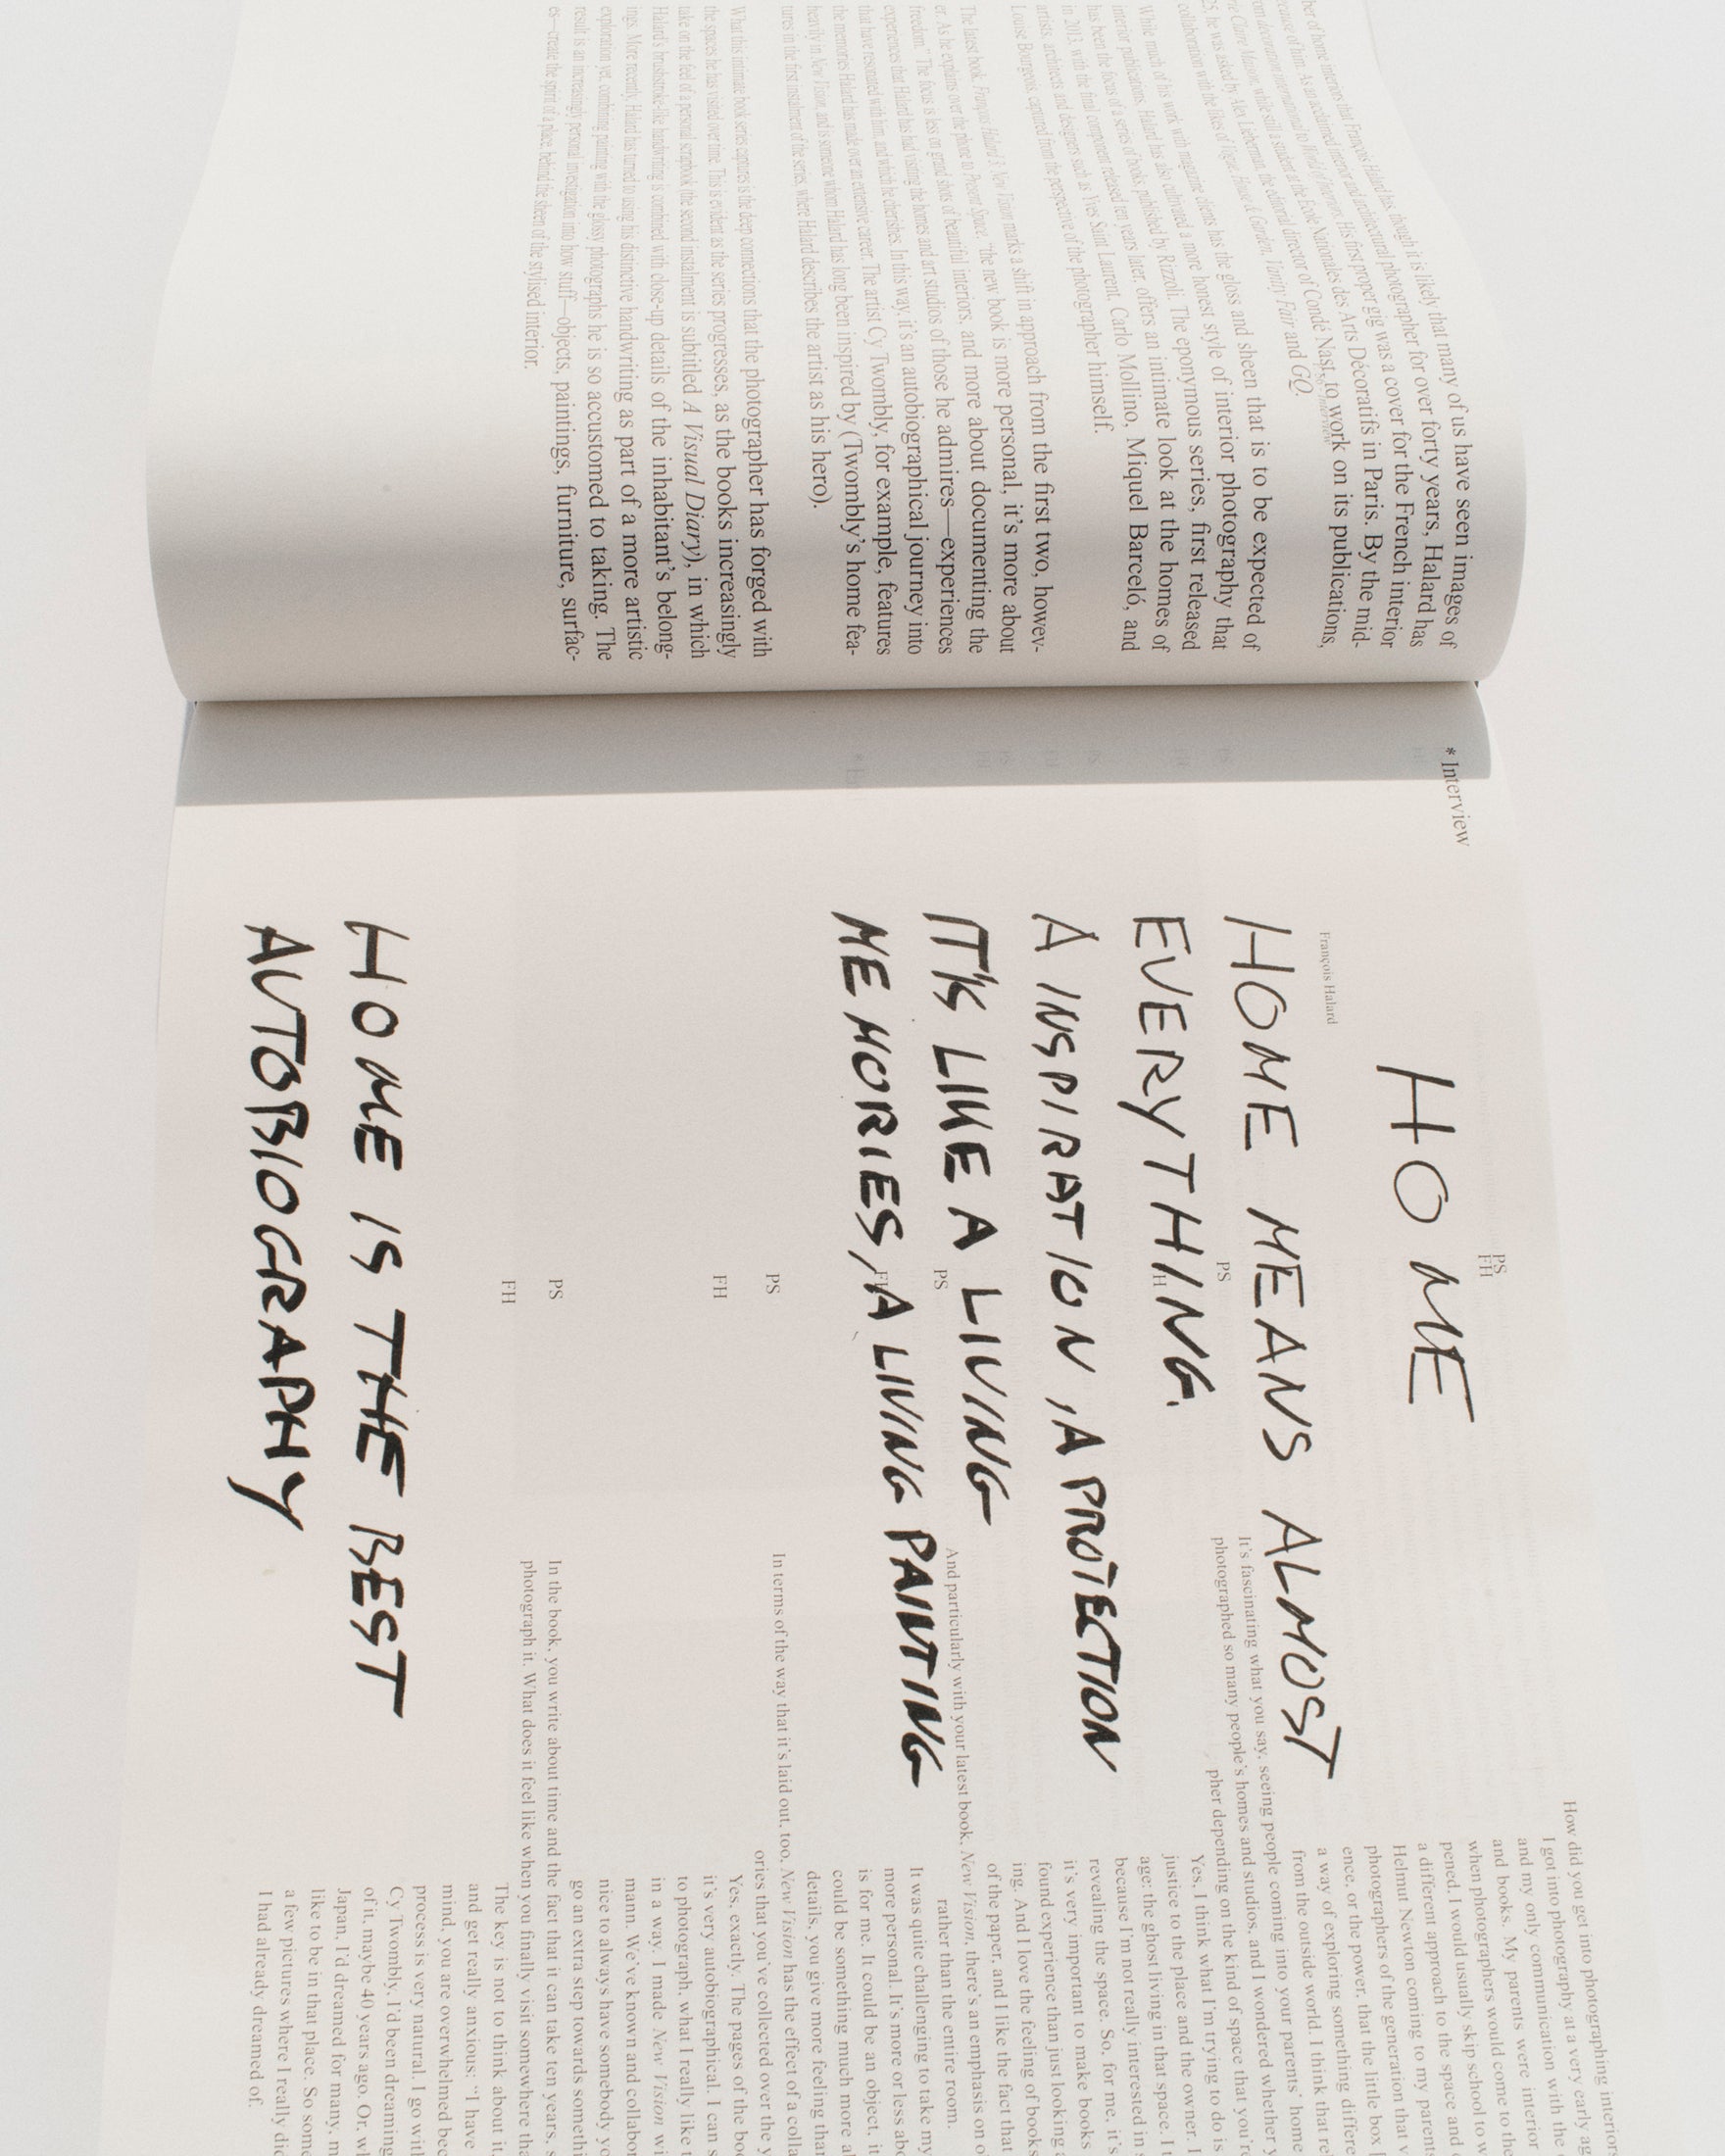 ber of home interiors that François Halard has, though it is likely that many of us have seen images of
because of him. As an acclaimed interior and architectural photographer for over forty years, Halard has
His first proper gig was a cover for the French interior
while still a student at the École Nationales des Arts Décoratifs in Paris. By the mid-
he was asked by Alex Lieberman, the editorial director of Condé Nast, to work on its publications,
collaboration with the likes of Vogue, House & Garden, Vanity Fair and GQ.
While much of his work with magazine clients has the gloss and sheen that is to be expected of
interior publications, Halard has also cultivated a more honest style of interior photography that
has been the focus of a series of books, published by Rizzoli. The eponymous series, first released
in 2013, with the final component released ten years later, offers an intimate look at the homes of
artists, architects and designers such as Yves Saint Laurent, Carlo Mollino, Miquel Barceló, and
Louise Bourgeois, captured from the perspective of the photographer himself.
The latest book, François Halard 3: New Vision marks a shift in approach from the first two, howev-
er. As he explains over the phone to Point Space: "the new book is more personal, it's more about
freedom." The focus is less on grand shots of beautiful interiors, and more about documenting the
experiences that Halard has had visiting the homes and art studios of those he admires—experiences
that have resonated with him, and which he cherishes. In this way, it's an autobiographical journey into
the memories Halard has made over an extensive career. The artist Cy Twombly, for example, features
heavily in New Vision, and is someone whom Halard has long been inspired by (Twombly's home fea-
tures in the first instalment of the series, where Halard describes the artist as his hero).
What this intimate book series captures is the deep connections that the photographer has forged with
the spaces he has visited over time. This is evident as the series progresses, as the books increasingly
take on the feel of a personal scrapbook (the second instalment is subtitled A Visual Diary), in which
Halard's brushstroke-like handwriting is combined with close-up details of the inhabitant's belong-
ings. More recently, Halard has turned to using his distinctive handwriting as part of a more artistic
exploration yet, combining painting with the glossy photographs he is so accustomed to taking. The
result is an increasingly personal investigation into how stuff—objects, paintings, furniture, surfac-
es—create the spirit of a place, behind the sheen of the stylised interior.
* Interview
François Halard
HOME
HOME MEANS ALMOST
EVERYTHING.
A INSPIRATION, A PROTECTION
IT'S LIKE A LIVING
MEMORIES, A LIVING PAINTING
HOME IS THE BEST
AUTOBIOGRAPHY
PS
FH
How did you get into photographing interiors
I got into photography at a very early ag
and my only communication with the
and books. My parents were interior
when photographers would come to the
pened. I would usually skip school to w
a different approach to the space and
Helmut Newton coming to my parents
photographers of the generation that
ence, or the power, that the little box
a way of exploring something differe
from the outside world. I think that re
PS
It's fascinating what you say, seeing people coming into your parents' home
photographed so many people's homes and studios, and I wondered whether y
pher depending on the kind of space that you're
Yes, I think what I'm trying to do is
justice to the place and the owner. I
age; the ghost living in that space. I t
because I'm not really interested in
revealing the space. So, for me, it's
it's very important to make books
found experience than just looking
ing. And I love the feeling of books
of the paper, and I like the fact that
PS
And particularly with your latest book, New Vision, there's an emphasis on
rather than the entire room.
FH
It was quite challenging to take my
more personal. It's more or less abo
is for me. It could be an object, it
could be something much more a
details, you give more feeling than
PS
In terms of the way that it's laid out, too, New Vision has the effect of a colla
ories that you've collected over the y
FH
Yes, exactly. The pages of the boo
it's very autobiographical. I can s
to photograph, what I really like t
in a way. I made New Vision wi
mann. We've known and collabor
nice to always have somebody yo
go an extra step towards somethi
PS
In the book, you write about time and the fact that it can take ten years,
photograph it. What does it feel like when you finally visit somewhere tha
FH
The key is not to think about it.
and get really anxious; "I have
mind, you are overwhelmed bec
process is very natural. I go wit
Cy Twombly, I'd been dreaming
of it, maybe 40 years ago. Or, wh
Japan. I'd dreamed for many, m
like to be in that place. So some
a few pictures where I really did
I had already dreamed of.